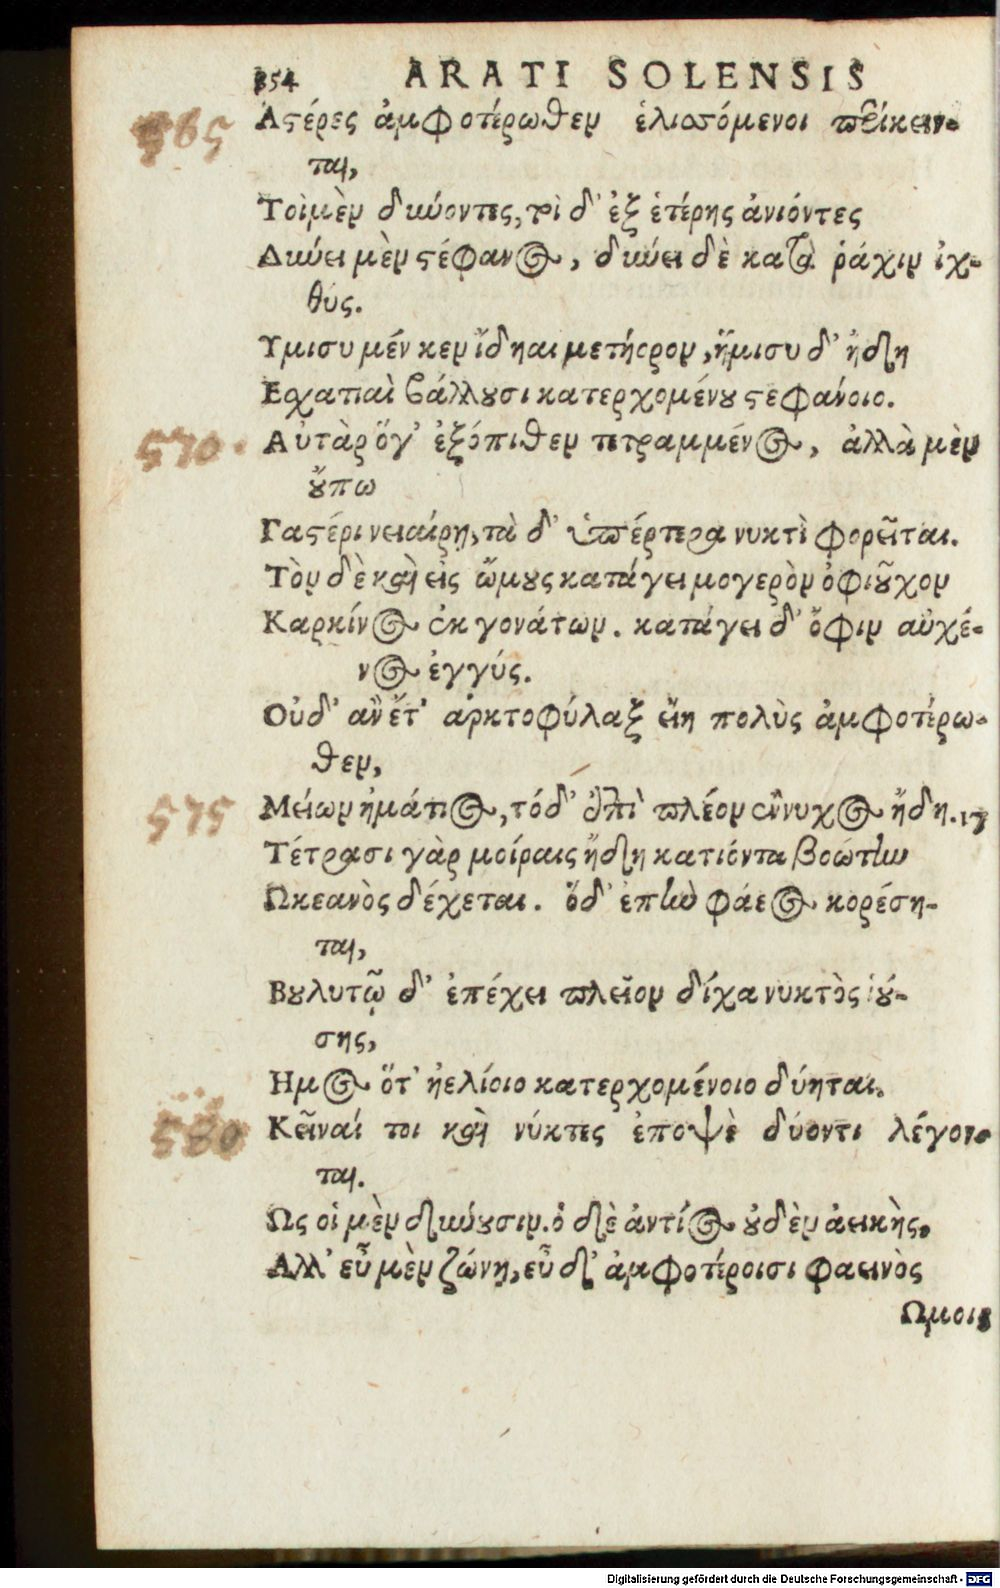 354 ARATI SOLENSIS
565 Ἀστέρες ἀμφοτέρωθεν ἑλισσόμενοι περίκειν-
ται,
Τοὶ μὲν δύνοντες, τοὶ δ' ἐξ ἑτέρης ἀνιόντες
Δύνει μὲν στέφανος, δύνει δὲ κατὰ ῥάχιν ἰχ-
θύς.
Υμισυ μέν κεν ἴδηαι μετήορον, ἥμισυ δ' ἤδη
Εχατιαὶ βάλλουσι κατερχομένου στεφάνοιο.
570. Αὐτὰρ ὅγ' ἐξόπιθεν τετραμμένος, ἀλλὰ μὲν
οὔπω
Γαστέρι νειαίρῃ, τὰ δ' ὑπέρτερα νυκτὶ φορεῖται.
Τὸν δὲ καὶ εἰς ὤμους κατάγει μογερὸν ὀφιοῦχον
Καρκίνος ἐκ γονάτων. κατάγει δ' ὄφιν αὐχέ-
νος ἐγγύς.
Οὐδ' ἂν ἔτ' ἀρκτοφύλαξ εἴη πολὺς ἀμφοτέρω-
θεν,
575 Μείων ἠμάτιος, τόδ' ἐπὶ πλέον ἔννυχος ἤδη.
Τέτρασι γὰρ μοίραις ἤδη κατιόντα βοώτην
Ωκεανὸς δέχεται. ὅδ' ἐπὴν φάεος κορέση-
ται,
Βουλυτῷ δ' ἐπέχει πλεῖον δίχα νυκτὸς ἰού-
σης,
Ημος ὅτ' ἠελίοιο κατερχομένοιο δύηται.
580 Κεῖναί τοι καὶ νύκτες ἐποψὲ δύοντι λέγον-
ται.
Ως οἱ μὲν δύνουσιν. ὁ δὲ ἀντίος οὐδὲν ἀεικὴς,
Αλλ' εὖ μὲν ζώνῃ, εὖ δ' ἀμφοτέροισι φαεινὸς
Ωμοις
Digitalisierung gefördert durch die Deutsche Forschungsgemeinschaft - DFG